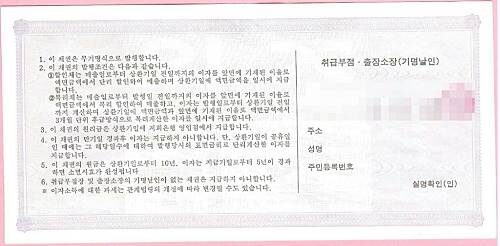 1. 이 채권은 무기명식으로 발행합니다.
2. 이 채권의 발행조건은 다음과 같습니다.
①할인채는 매출일로부터 상환기일 전일까지의 이자를 앞면에 기재된 이율로
액면금액에서 단리 할인하여 매출하며 상환기일에 액면금액을 일시에 지급
합니다.
②복리채는 매출일로부터 발행일 전일까지의 이자를 앞면에 기재된 이율로
액면금액에서 복리 할인하여 매출하고, 이자는 발행일로부터 상환기일 전일
까지 계산하며 상환기일에 액면금액과 앞면에 기재된 이율로 액면금액에서
3개월 단위 후급방식으로 복리계산한 이자를 일시에 지급합니다.
3. 이 채권의 원리금은 상환기일에 저희은행 영업점에서 지급합니다.
4. 이 채권의 만기일 경과후 이자는 지급하지 아니합니다. 단, 상환기일이 공휴일
인 때에는 그 해당일수에 대하여 발행당시의 표면금리로 단리계산한 이자를
지급합니다.
5. 이 채권의 원금은 상환기일로부터 10년, 이자는 지급기일로부터 5년이 경과
하면 소멸시효가 완성됩니다
6. 취급부점장 및 출장소장의 기명날인이 없는 채권은 지급하지 아니합니다.
* 이자소득에 대한 과세는 관계법령의 개정에 따라 변경될 수도 있습니다.
취급부점·출장소장(기명날인)
주소
성명
주민등록번호
실명확인(인)